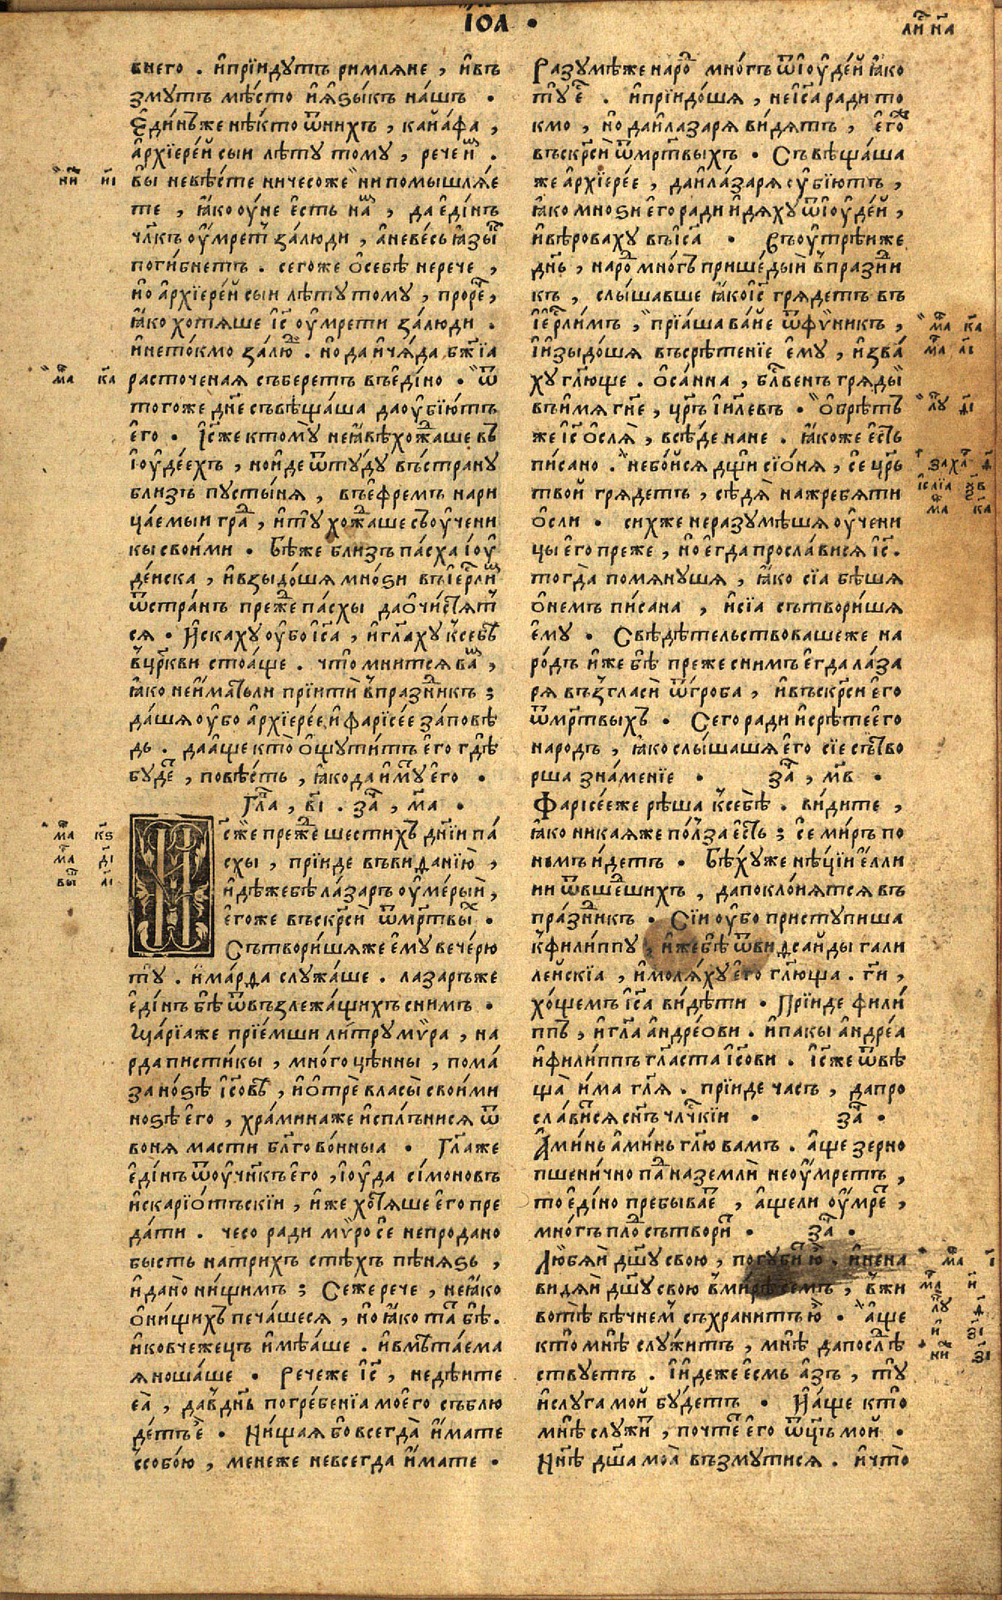 І҆ѡа •
внего . и҆прїидутъ римляне , и҆въ
змутъ мѣсто и҆ꙗ҆зы́къ на́шъ •
Е҆ди́нъже нѣкто ѿни́хъ , кайа́фа ,
а҆рхїере́й сыи лѣту то́му , рече и҆̀м .
вы̀ невѣ́сте ничесоже ни помышлѧ́е
те , ꙗ҆́ко оу҆́не е҆сть на̀м , да е҆ди́нъ
чл҃къ оу҆́мрет за́люди , а҆невесь ꙗ҆зы́к
поги́бнетъ . сегоже ѻ҆себѣ̀ нерече ,
но а҆рхїере́й сыи лѣту тому , проре́ч ,
ꙗ҆́ко хотѧше і҆с оу҆мрети за́люди .
и҆нето́кмо за́люд . но да и҆ча́да бж҃їа
расточенаꙗ съберетъ въе҆ди́но • ѿ
тогоже дн҃е съвѣща́ша даоу҆бїю́тъ
е҆го • І҆с҃же ктому̀ неꙗ҆́вѣхожда́ше въ
і҆оу҆де́ехъ , нои҆де ѿту́ду въстрану
бли́зъ пусты́нѧ , въе҆фремъ нари
ца́емыи гра́д , и҆ту хожда́ше своу҆чени
кы свои́ми • Бѣ́же близъ па́сха і҆оу҆
де́иска , и҆взыдо́шѧ мно́ѕи въі҆ер҃ли́м
ѿстра́нъ преже па́схы даѻ҆чи́стѧт
сѧ • И҆скаху оу҆бо і҆с҃а , и҆гл҃аху ксебѣ̀
вцр҃кви стоа́ще . что̀ мни́тсѧ ва̀м ,
ꙗ҆́ко неи҆мать́ли прїитѝ впра́зникъ ;
да́шѧ оу҆бо а҆рхїере́е и҆ фарїсе́е за́повѣ
дь . даа҆́ще кто̀ ѻ҆щути́тъ е҆го гдѣ̀
буде́т , повѣ́сть , ꙗ҆́кода и҆́мутъ е҆го •
Гла́ , в҃і . за́ч , м҃а •
І҆с҃же преже шести́хъ дн҃їи па́
схы , прїи́де въви́фанїю ,
и҆дѣ́жебѣ̀ ла́заръ оу҆ме́рый ,
е҆гоже въскр҃сѝ ѿме́ртвы́х •
Сътвори́шѧже е҆му вече́рю
ту̀ . и҆ма́рфа служа́ше . лазаръже
е҆ди́нъ бѣ̀ ѿвъзлежа́щихъ снимъ •
Ма́рїаже прїе́мши ли́тру мѵ́ра , на́
рда писти́кы , мно́гоцѣ́нны , пома́
за но́ѕѣ і҆с҃овѣ̀ , и҆ѻ҆трѐ власы̀ свои́ми
но́ѕѣ е҆го , хра́минаже и҆спл́ънисѧ ѿ
вонѧ масти бл҃гово́нныа • Гл҃аже
е҆ди́нъ ѿоу҆чн҃къ е҆го , і҆оу҆да сі́моновъ
и҆скарїо́тъскїи , и҆же хотѧ́ше е҆го пре
да́ти . чесо ради мѵ́ро се́ непродано
бысть натрихъ стѣхъ пѣнѧѕь ,
и҆дано̀ ни́щимъ ; Сеже рече , неꙗ҆́ко
ѻ҆ни́щихъ печа́шесѧ , но ꙗ҆́ко та́т бѣ̀ .
и҆ковчежецъ и҆мѣ́аше . и҆вмѣта́ема
ꙗ҆ ноша́ше • Речеже і҆с҃ , недѣи́те
е҆ѧ̀ , давдн҃ь погре́бенїа мое́го съблю
де́тъ е҆̀ • Ни́щаѧ бо всегда̀ и҆́мате
ссобо́ю , менеже невсегда и҆́мате •
л҃и н҃а
Разумѣ́же наро́д мно́гъ ѿі҆оу҆де́й ꙗ҆́ко
ту̀ е́ . и҆прїидо́шѧ , неі҆с҃а ради то
кмо , но даи҆ла́зарѧ ви́дѧтъ , е҆го́ж
въскр҃сѝ ѿме́ртвыхъ • Съвѣща́ша
же а҆рхїере́е , даи҆ла́зарѧ оу҆бїю́тъ ,
ꙗ҆́ко мно́ѕи е҆го ради и҆дѧху ѿі҆оу҆де́й ,
и҆вѣроваху въі҆с҃а • Въоу҆трѣ́иже
дн҃ь , наро́д мно́гъ прише́дый впра́зни
къ , слы́шавше ꙗ҆́коі҆с҃ грѧдетъ въ
і҆ер҃ли́мъ , прїа́ша ва́йе ѿфѵ́никъ ,
и҆и҆зыдо́шѧ въсрѣ́тенїе е҆му , и҆зва́
ху гл҃юще . ѻ҆са́нна , бл҃венъ грѧды́й
въи́мѧ гн҃е , цр҃ь і҆и҃левъ • Ѻ҆брѣ́тъ
же і҆с҃ ѻ҆слѧ̀ , всѣ́де нане . ꙗ҆́коже е҆сть
пи́сано . небо́йсѧ дщи сїо́нѧ , се цр҃ь
твой грѧде́тъ , сѣдѧ̀ нажребѧти
ѻ҆сли • сихже неразумѣшѧ оу҆чени
цы е҆го преже , но е҆гда просла́висѧ і҆с҃ .
тогда̀ помѧнушѧ , ꙗ҆́ко сїа бѣшѧ
ѻ҆немъ пи́сана , и҆сїа сътвори́шѧ
е҆му • Свѣдѣ́тельствовашеже на
ро́дъ и҆же бѣ̀ преже снимъ е҆гда ла́за
рѧ възгласѝ ѿгро́ба , и҆въскр҃си е҆го
ѿме́ртвыхъ • Сего ради и҆срѣ́тее҆го
народъ , ꙗ҆́ко слы́шашѧ е҆го сїе сътво
рша зна́менїе • за́ч , м҃в •
Фарїсе́еже рѣ́ша ксебѣ̀ . ви́дите ,
ꙗ҆́ко никаѧже по́лза е҆сть ; се ми́ръ по
не́мъ и҆детъ • Бѣ́хуже нѣ́цїи е҆́лли
ни ѿвше́дшихъ , дапоклонѧ́тсѧ въ
пра́зникъ • Сїи оу҆бо приступи́ша
кфили́ппу , и҆жебѣ̀ ѿвиѳсаи́ды гали
ле́искїа , и҆молѧ́ху е҆го гл҃юща . ги҃ ,
хо́щемъ і҆с҃а ви́дѣти • Прїи́де фили́
ппъ , и҆гл҃а а҆ндре́ови . и҆пакы а҆ндре́а
и҆фили́ппъ гл҃аста і҆с҃ови . і҆с҃же ѿвѣ
ща̀ и҆ма гл҃ѧ . прїи́де часъ , дапро
сла́витсѧ сн҃ъ чл҃чкїи • за́ч •
А҆ми́нь а҆ми́нь гл҃ю вамъ . а҆́ще зерно
пшени́чно па́д наземлѝ неоу҆́мретъ ,
то е҆ди́но пребывае́т , а҆́щели оу҆́мре́т ,
мно́гъ пло́д сътвори́т • за́ч •
Любѧ́й дш҃у свою , погуби́т ю̀ . и҆нена
ви́дѧй дш҃у свою вми́рѣ семъ , вжи
вотѣ̀ вѣ́чнем съхрани́тъ ю̀ • А҆́ще
кто̀ мнѣ̀ слу́житъ , мнѣ̀ дапослѣ́
ствуетъ . и҆и҆деже е҆смь а҆зъ , ту̀
и҆слуга мо́й бу́детъ • И҆а҆́ще кто̀
мнѣ̀ слу́жит , почте́т е҆го ѿц҃ъ мой •
Нн҃ѣ дш҃а моѧ̀ възмути́сѧ . и҆что̀